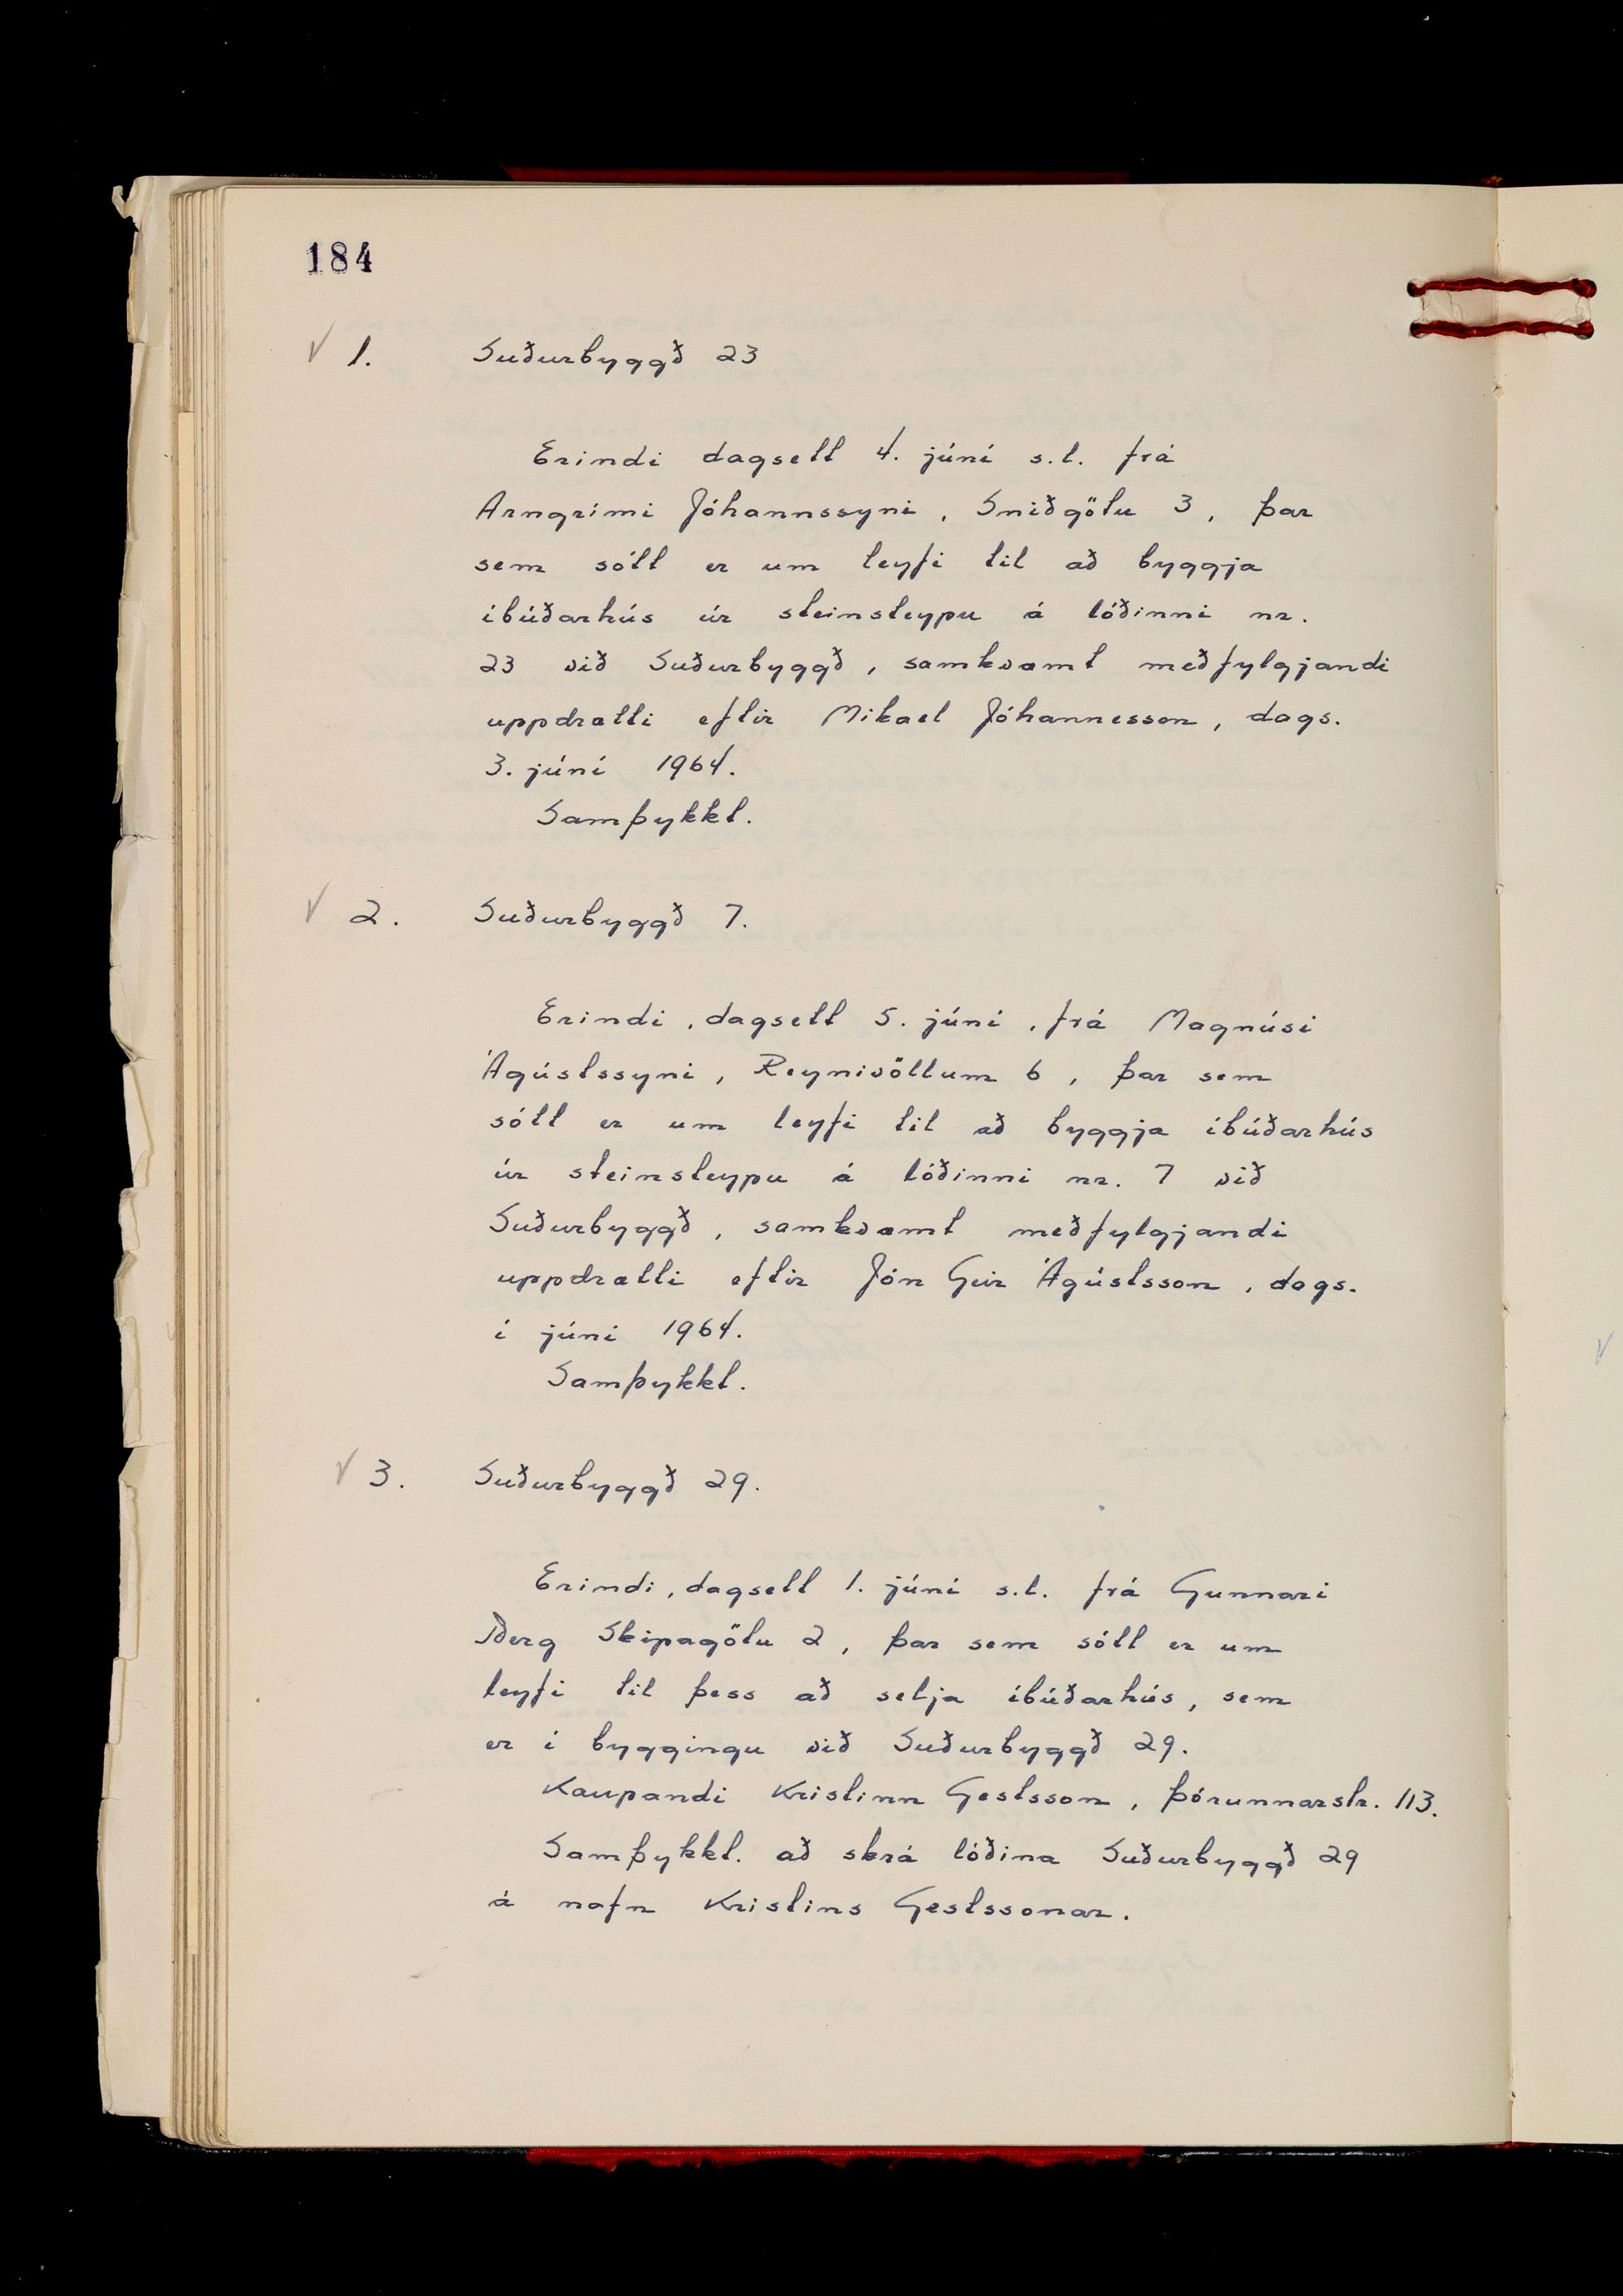 184
✓ 1. Suðurbyggð 23
Erindi dagsett 4. júní s.l. frá
Arngrími Jóhannssyni, Sniðgötu 3, þar
sem sótt er um leyfi til að byggja
íbúðarhús úr steinsteypu á lóðinni nr.
23 við Suðurbyggð, samkvæmt meðfylgjandi
uppdrætti eftir Mikael Jóhannesson, dags.
3. júní 1964.
Samþykkt.
✓ 2. Suðurbyggð 7.
Erindi, dagsett 5. júní, frá Magnúsi
Ágústssyni, Reynivöllum 6, þar sem
sótt er um leyfi til að byggja íbúðarhús
úr steinsteypu á lóðinni nr. 7 við
Suðurbyggð, samkvæmt meðfylgjandi
uppdrætti eftir Jón Geir Ágústsson, dags.
í júní 1964.
Samþykkt.
✓ 3. Suðurbyggð 29.
Erindi, dagsett 1. júní s.l. frá Gunnari
Berg Skipagötu 2, þar sem sótt er um
leyfi til þess að selja íbúðarhús, sem
er í byggingu við Suðurbyggð 29.
Kaupandi Kristinn Gestsson, Þórunnarstr. 113.
Samþykkt. að skrá lóðina Suðurbyggð 29
á nafn Kristins Gestssonar.